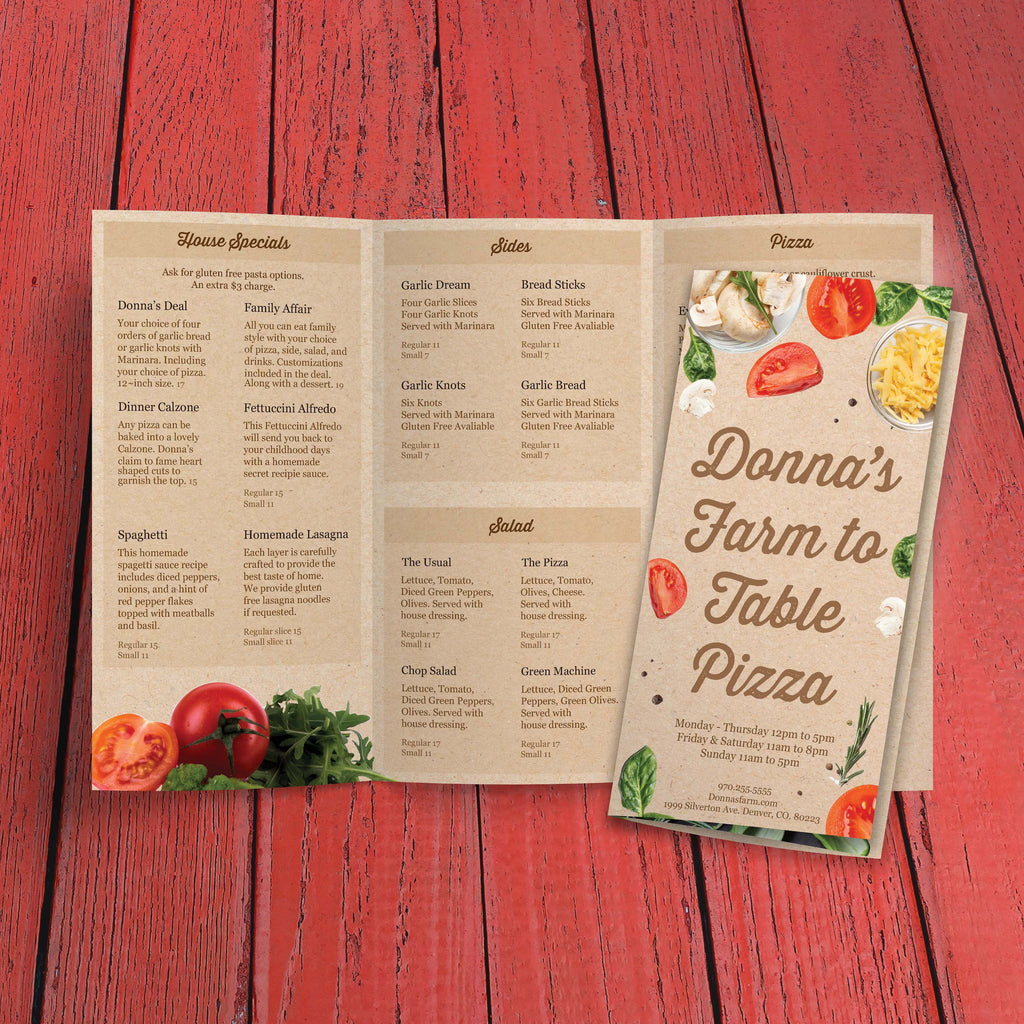 House Specials
Ask for gluten free pasta options.
An extra $3 charge.
Donna's Deal
Your choice of four
orders of garlic bread
or garlic knots with
Marinara. Including
your choice of pizza.
12~inch size. 17
Family Affair
All you can eat family
style with your choice
of pizza, side, salad, and
drinks. Customizations
included in the deal.
Along with a dessert. 19
Dinner Calzone
Any pizza can be
baked into a lovely
Calzone. Donna's
claim to fame heart
shaped cuts to
garnish the top. 15
Fettuccini Alfredo
This Fettuccini Alfredo
will send you back to
your childhood days
with a homemade
secret recipie sauce.
Regular 15
Small 11
Spaghetti
This homemade
spagetti sauce recipe
includes diced peppers,
onions, and a hint of
red pepper flakes
topped with meatballs
and basil.
Regular 15
Small 11
Homemade Lasagna
Each layer is carefully
crafted to provide the
best taste of home.
We provide gluten
free lasagna noodles
if requested.
Regular slice 15
Small slice 11
Sides
Garlic Dream
Four Garlic Slices
Four Garlic Knots
Served with Marinara
Regular 11
Small 7
Bread Sticks
Six Bread Sticks
Served with Marinara
Gluten Free Avaliable
Regular 11
Small 7
Garlic Knots
Six Knots
Served with Marinara
Gluten Free Avaliable
Regular 11
Small 7
Garlic Bread
Six Garlic Bread Sticks
Served with Marinara
Gluten Free Avaliable
Regular 11
Small 7
Salad
The Usual
Lettuce, Tomato,
Diced Green Peppers,
Olives. Served with
house dressing.
Regular 17
Small 11
The Pizza
Lettuce, Tomato,
Olives, Cheese.
Served with
house dressing.
Regular 17
Small 11
Chop Salad
Lettuce, Tomato,
Diced Green Peppers,
Olives. Served with
house dressing.
Regular 17
Small 11
Green Machine
Lettuce, Diced Green
Peppers, Green Olives.
Served with
house dressing.
Regular 17
Small 11
Pizza
or cauliflower crust.
Donna's
Farm to
Table
Pizza
Monday - Thursday 12pm to 5pm
Friday & Saturday 11am to 8pm
Sunday 11am to 5pm
970.255-5555
Donnasfarm.com
1999 Silverton Ave. Denver, CO. 80223